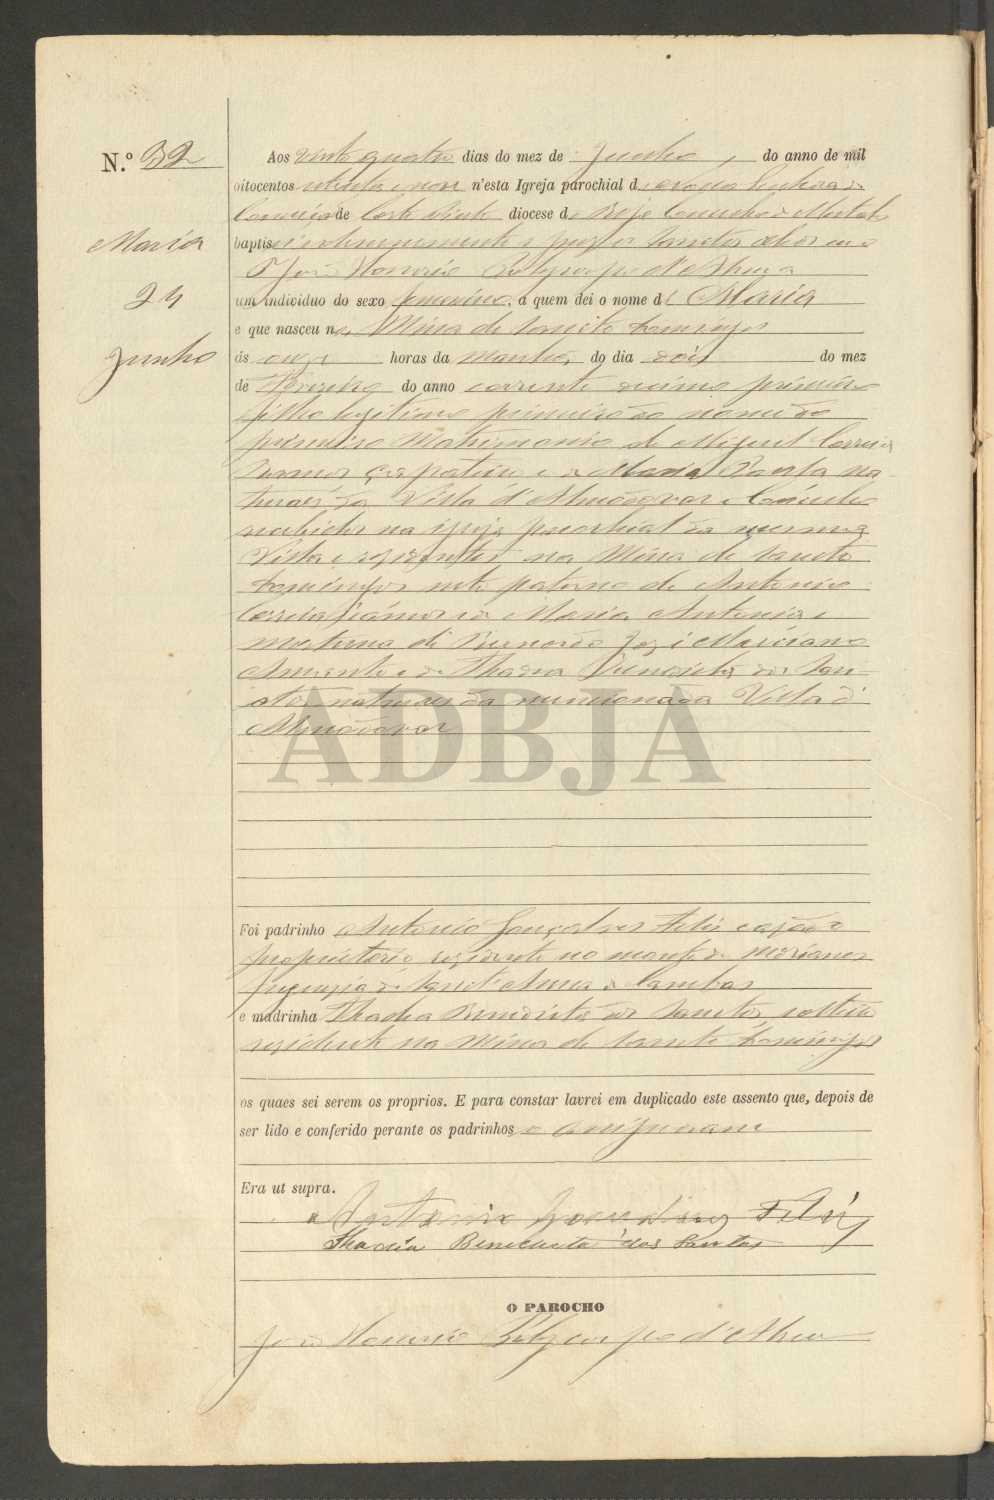 N.º 32
Maria
24
Junho
Aos vinte quatro dias do mez de Junho, do anno de mil
oitocentos oitenta e nove n'esta Igreja parochial de Nossa Senhora da
Conceição de Corte Pinto diocese de Beja Concelho de Mertola
baptisei solemnemente e puz os Sanctos oleos eu o
P.e João Honorio Polycarpo d'
um individuo do sexo femenino, a quem dei o nome de Maria
e que nasceu na Mina de Sancto Domingos
ás onze horas da manhã, do dia dois do mez
de Fevereiro do anno corrente
filha legitima primeira do nome do
primeiro Matrimonio de Miguel Correia
Ramos e de Maria Paula na
turaes da Villa d'Almodovar e Concelho
recebidos na igreja parochial da mesma
Villa e residentes na Mina de Sancto
Domingos neta paterna de Antonio
Correia Ramos e de Maria Antonia e
materna de José Marciano
e de Thadea Benedicta dos San-
tos naturaes da mencionada Villa d'
Almodovar
ADBJA
Foi padrinho Antonio Gonçalves Feliz casado
proprietario residente no monte de
freguezia de Sanct'Anna de Cambas
e madrinha Thadea Benedicta dos Santos, solteira
residente na Mina de Sancto Domingos
os quaes sei serem os proprios. E para constar lavrei em duplicado este assento que, depois de
ser lido e conferido perante os padrinhos o assignaram
Era ut supra.
Antonio Goncalves Feliz
Thadea Benedicta dos Santos
O PAROCHO
João Honorio Polycarpo d'